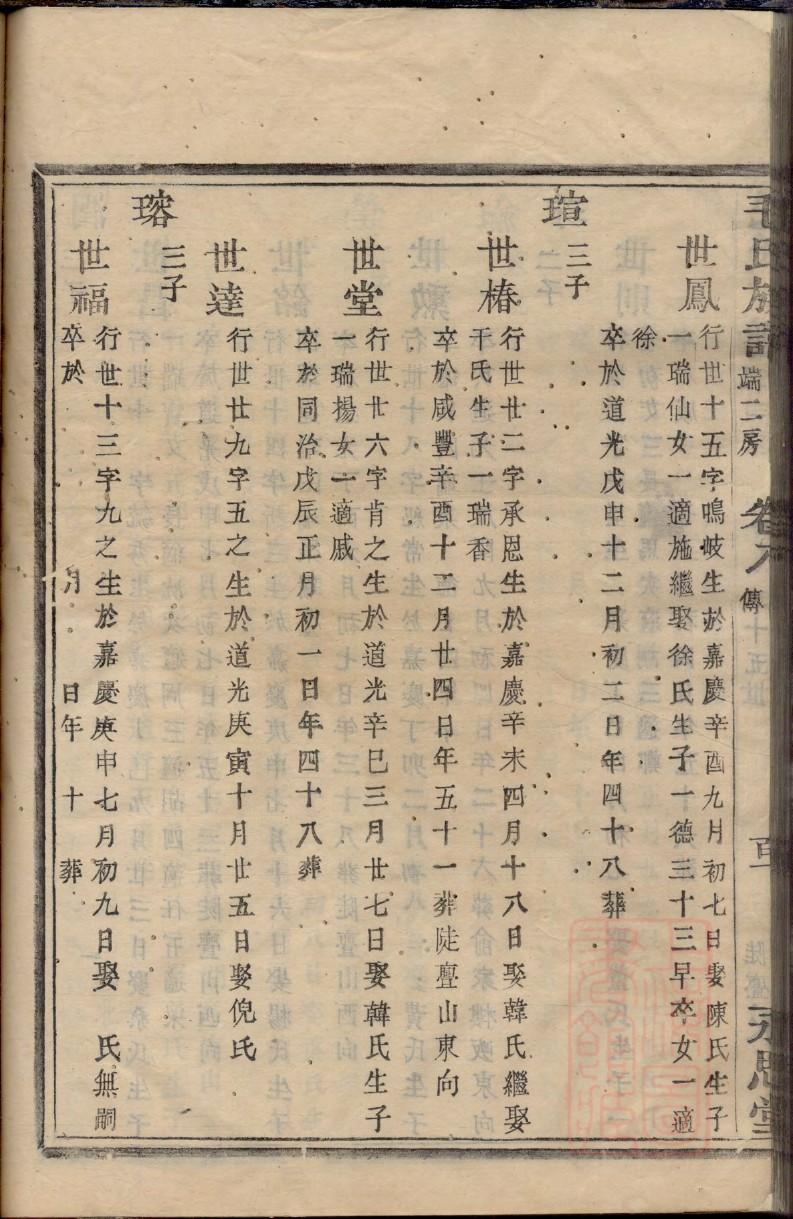 毛氏族譜 端二房 卷八 傳 永思堂
世鳳 行世十五字鳴岐生於嘉慶辛酉九月初七日娶陳氏生子
一瑞仙女一適施繼娶徐氏生子一德三十三早卒女一適
徐
卒於道光戊申十二月初二日年四十八葬
瑄 三子
世椿 行世廿二字承恩生於嘉慶辛未四月十八日娶韓氏繼娶
干氏生子一瑞香
卒於咸豐辛酉十二月廿四日年五十一葬陡亹山東向
世堂 行世廿六字肯之生於道光辛巳三月廿七日娶韓氏生子
一瑞揚女一適戚
卒於同治戊辰正月初一日年四十八葬
世達 行世廿九字五之生於道光庚寅十月廿五日娶倪氏
瑢 三子
世福 行世十三字九之生於嘉慶庚申七月初九日娶 氏無嗣
卒於 月 日年 十 葬